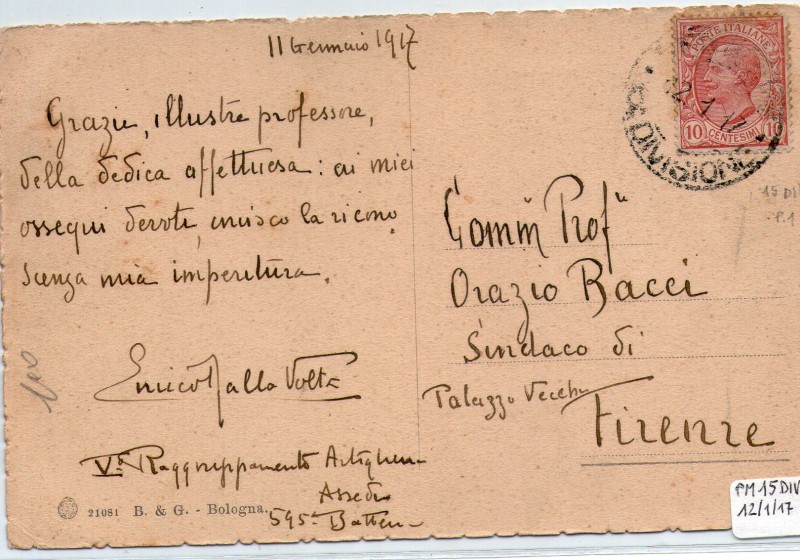 11 Gennaio 1917
Grazie, illustre professore,
della dedica affettuosa: ai miei
ossequi devoti, unisco la ricono
scenza mia imperitura.
Enrico Dalla Volta
V° Raggruppamento Artiglieria
Assedio
595a Batteria
21081 B. & G. - Bologna.
POSTE ITALIANE
10 CENTESIMI 10
DIVISIONE
12 1 17
15 DIV
P.1
Comm Prof
Orazio Bacci
Sindaco di
Palazzo Vecchio
Firenze
PM 15 DIV
12/1/17